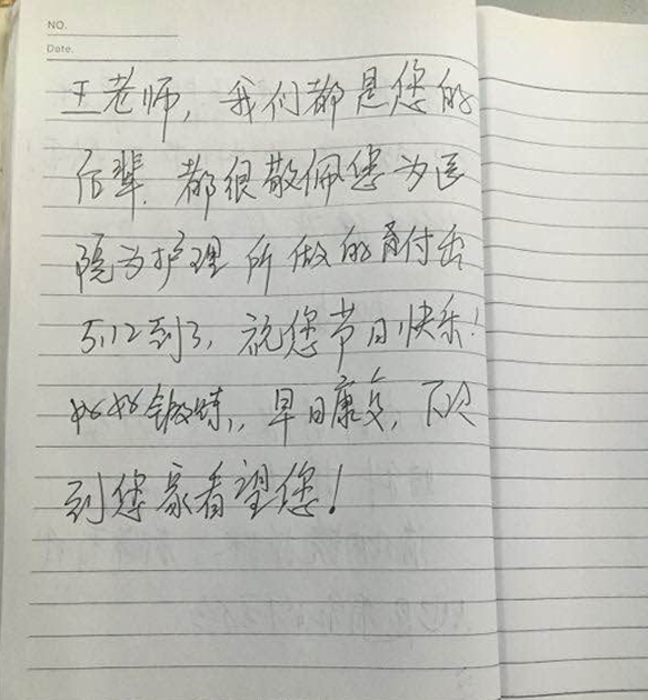 NO.
Date.
王老师，我们都是您的
后辈.都很敬佩您为医
院为护理所做的付出
5.12到了，祝您节日快乐！
好好锻炼，早日康复，下次
到您家看望您！